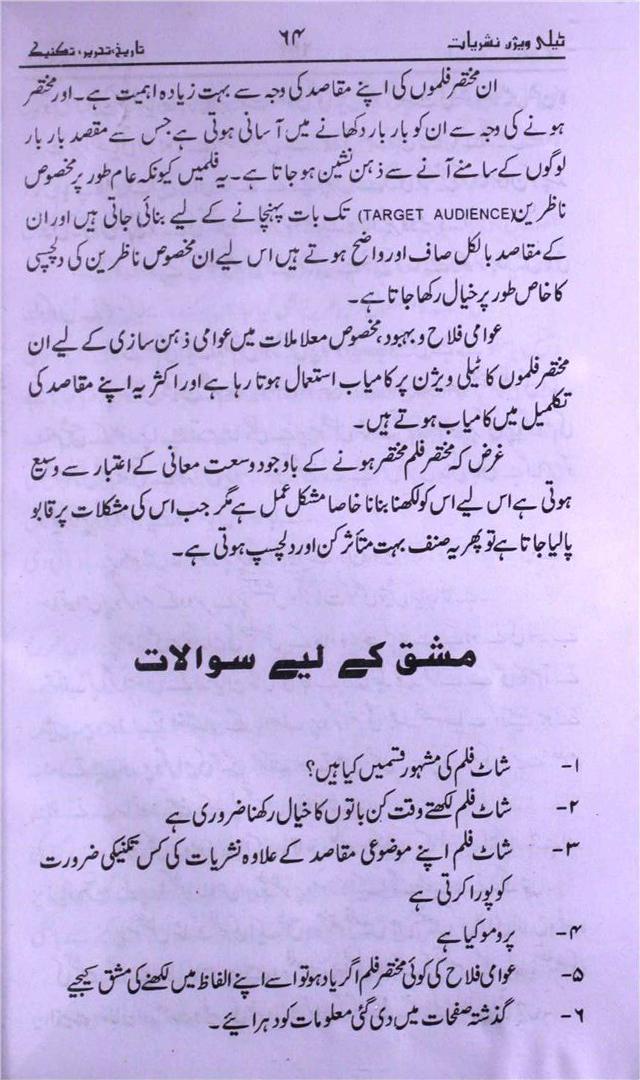 ٹیلی ویژن نشریات ۶۴ تاریخ، تحریر، تکنیک
ان مختصر فلموں کی اپنے مقاصد کی وجہ سے بہت زیادہ اہمیت ہے۔ اور مختصر
ہونے کی وجہ سے ان کو بار بار دکھانے میں آسانی ہوتی ہے جس سے مقصد بار بار
لوگوں کے سامنے آنے سے ذہن نشین ہو جاتا ہے۔ یہ فلمیں کیونکہ عام طور پر مخصوص
ناظرین (TARGET AUDIENCE) تک بات پہنچانے کے لیے بنائی جاتی ہیں اور ان
کے مقاصد بالکل صاف اور واضح ہوتے ہیں اس لیے ان مخصوص ناظرین کی دلچسپی
کا خاص طور پر خیال رکھا جاتا ہے۔
عوامی فلاح و بہبود، مخصوص معاملات میں عوامی ذہن سازی کے لیے ان
مختصر فلموں کا ٹیلی ویژن پر کامیاب استعمال ہوتا رہا ہے اور اکثر یہ اپنے مقاصد کی
تکمیل میں کامیاب ہوتے ہیں۔
غرض کہ مختصر فلم مختصر ہونے کے باوجود وسعت معانی کے اعتبار سے وسیع
ہوتی ہے اس لیے اس کو لکھنا بنانا خاصا مشکل عمل ہے مگر جب اس کی مشکلات پر قابو
پا لیا جاتا ہے تو پھر یہ صنف بہت متأثر کن اور دلچسپ ہوتی ہے۔
مشق کے لیے سوالات
۱- شاٹ فلم کی مشہور قسمیں کیا ہیں؟
۲- شاٹ فلم لکھتے وقت کن باتوں کا خیال رکھنا ضروری ہے
۳- شاٹ فلم اپنے موضوعی مقاصد کے علاوہ نشریات کی کس تکنیکی ضرورت
کو پورا کرتی ہے
۴- پرومو کیا ہے
۵- عوامی فلاح کی کوئی مختصر فلم اگر یاد ہو تو اسے اپنے الفاظ میں لکھنے کی مشق کیجیے
۶- گذشتہ صفحات میں دی گئی معلومات کو دہرائیے۔